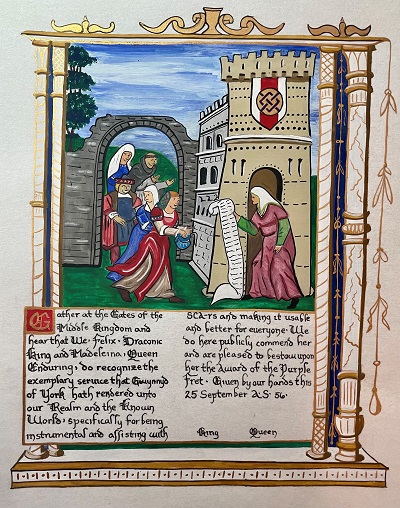 Gather at the Gates of the
Middle Kingdom and
hear that We, Felix, Draconic
King and Madeleina, Queen
Enduring, do recognize the
exemplary service that Gwynnyd
of York hath rendered unto
our Realm and the Known
World, specifically for being
instrumental and assisting with
SCA-rs and making it usable
and better for everyone. We
do here publicly commend her
and are pleased to bestow upon
her the Award of the Purple
Fret. Given by our hands this
25 September A.S. 56.
King Queen